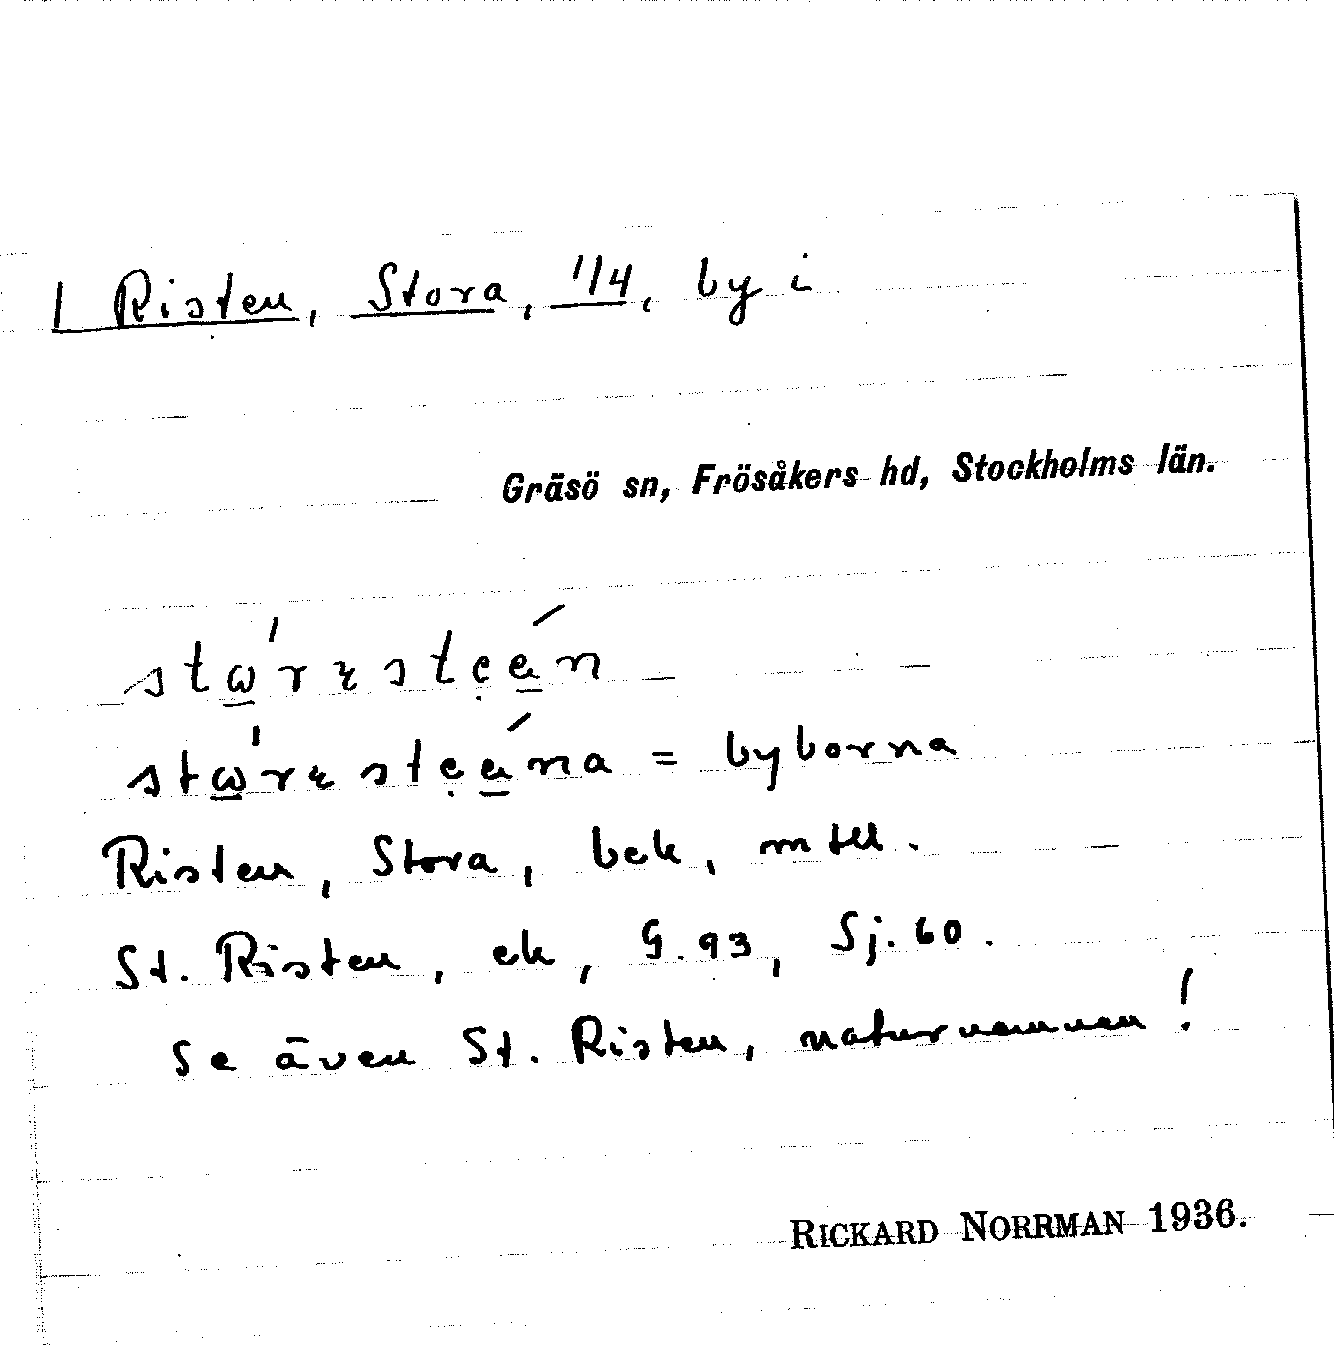 Risten, Stora, 1/4, by i
Gräsö sn, Frösåkers hd, Stockholms län.
= byborna
Risten, Stora, bek, mtll.
St. Risten, ek, G. 93, Sj. 60.
Se även St. Risten, naturnamnen!
RICKARD NORRMAN 1936.